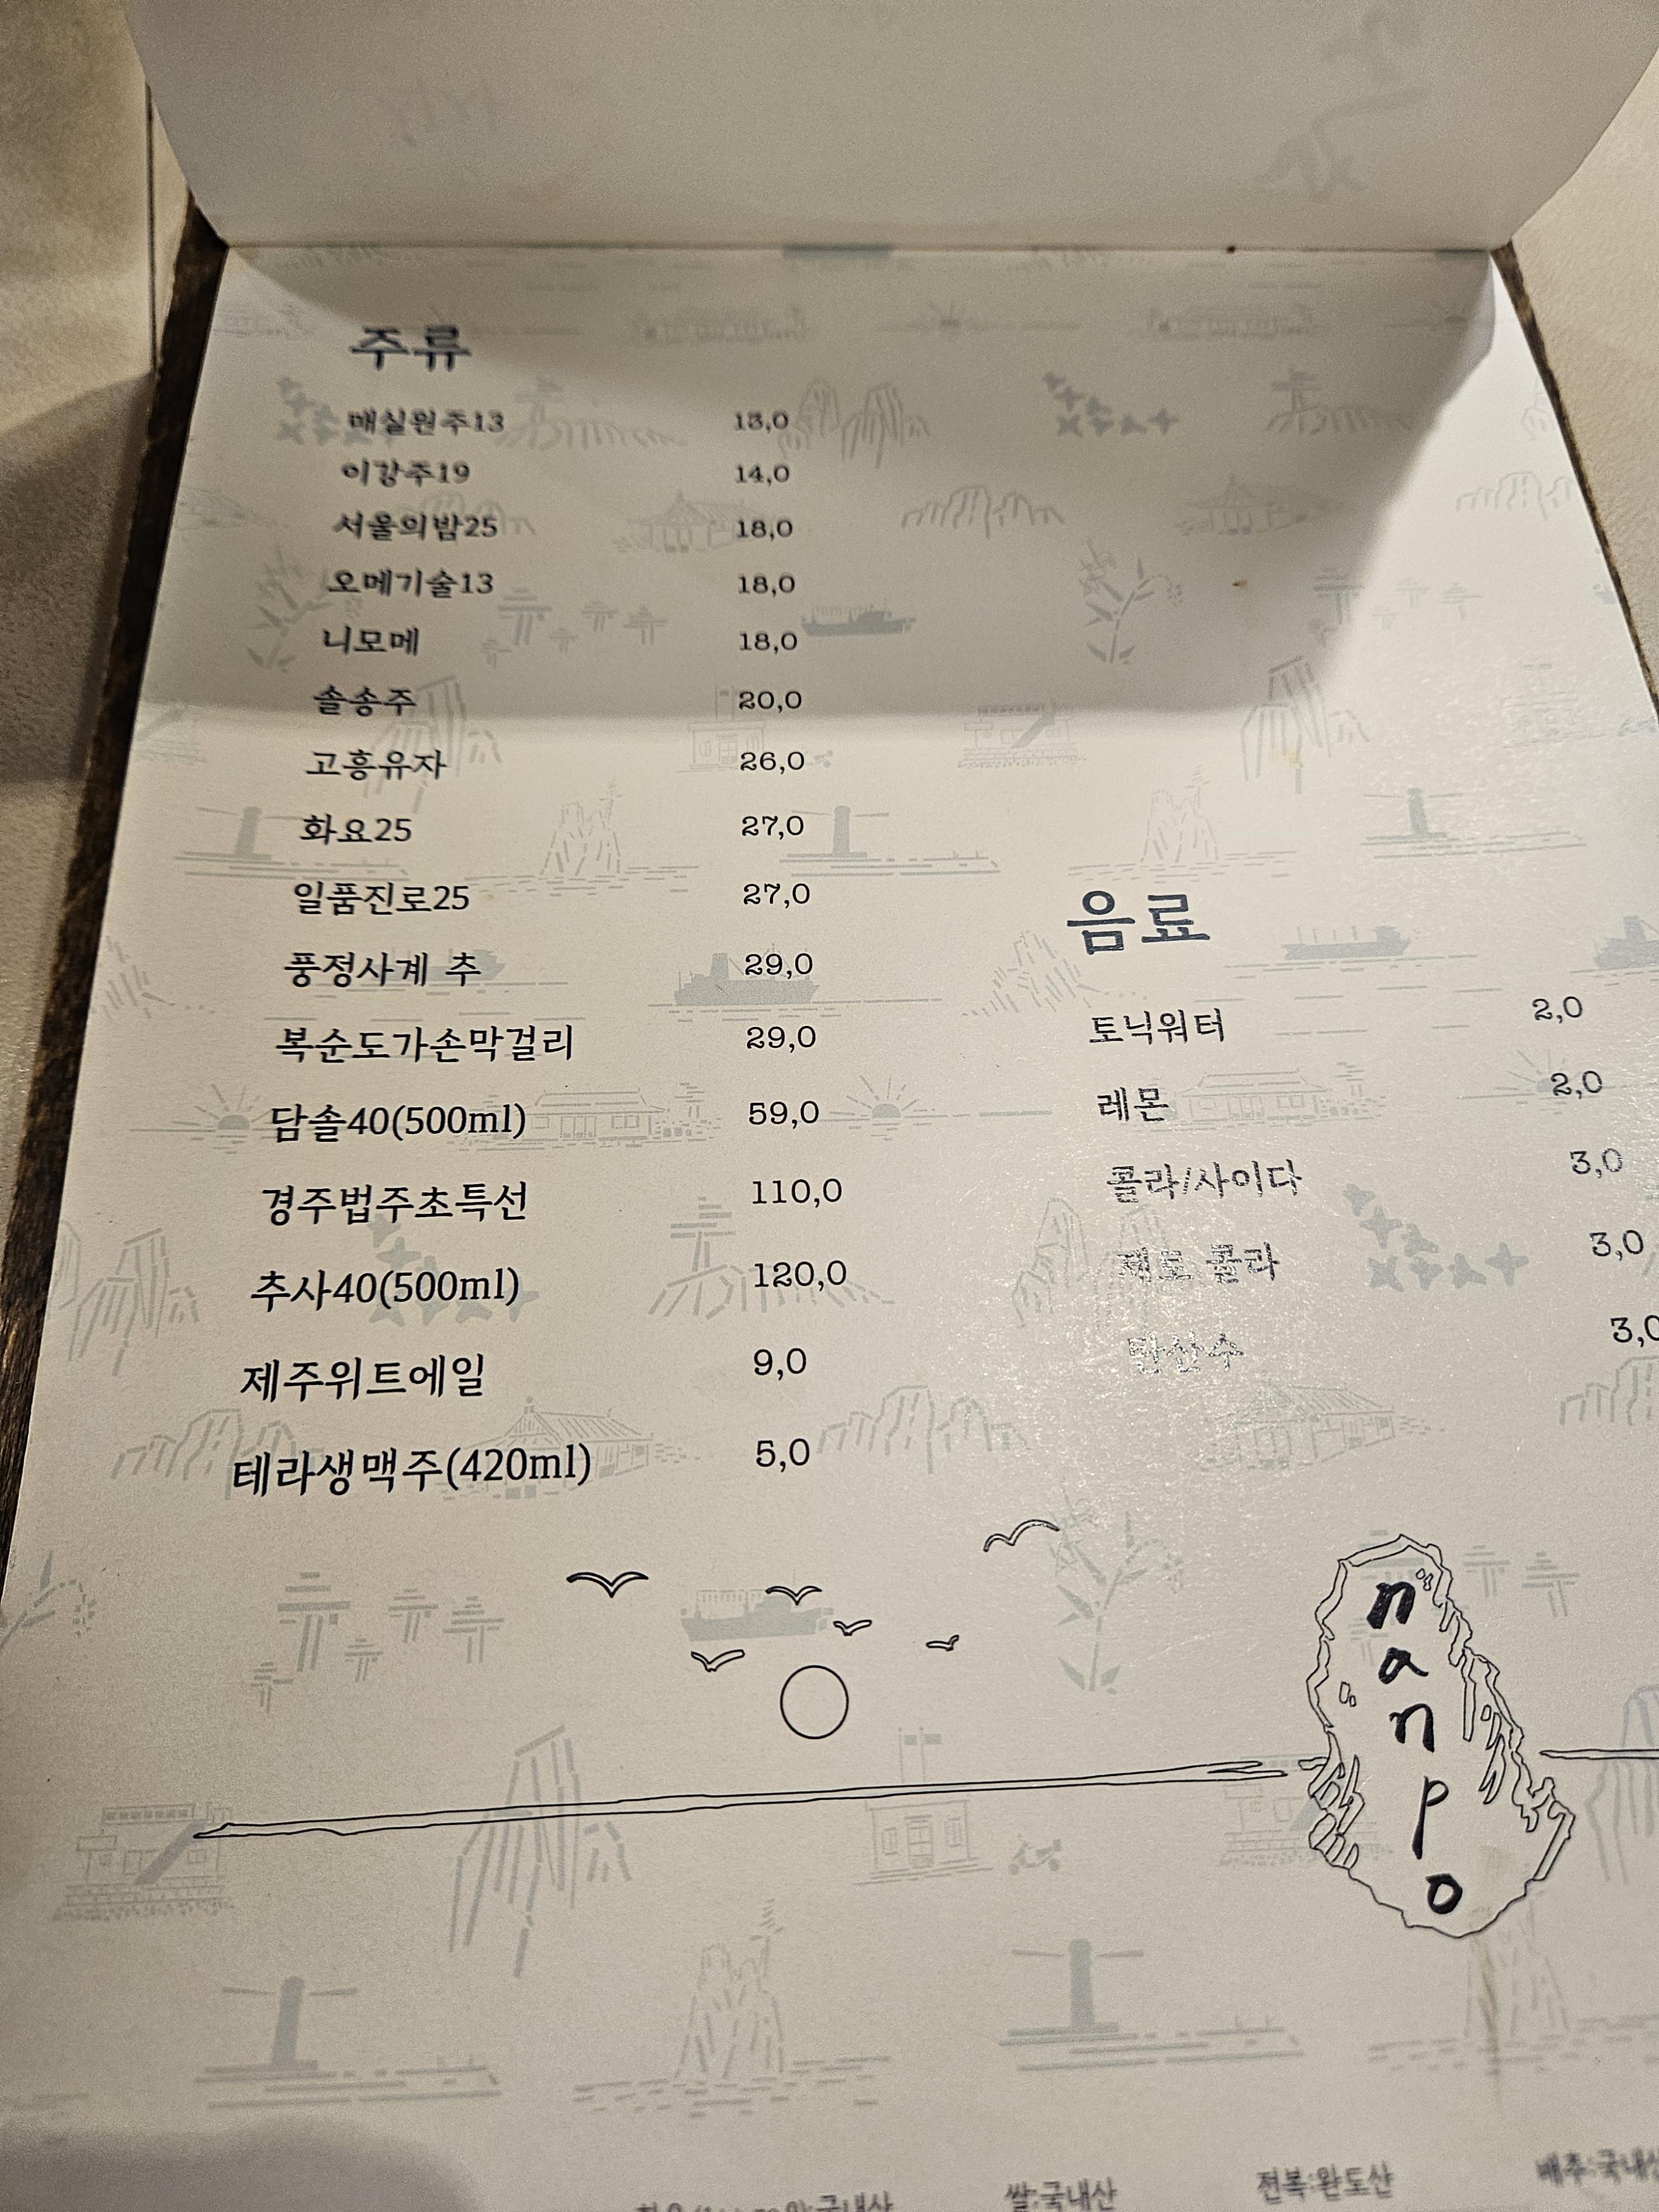 주류
매실원주13 13,0
이강주19 14,0
서울의밤25 18,0
오메기술13 18,0
니모메 18,0
솔송주 20,0
고흥유자 26,0
화요25 27,0
일품진로25 27,0
풍정사계 추 29,0
복순도가손막걸리 29,0
담솔40(500ml) 59,0
경주법주초특선 110,0
추사40(500ml) 120,0
제주위트에일 9,0
테라생맥주(420ml) 5,0
음료
토닉워터 2,0
레몬 2,0
콜라/사이다 3,0
제로 콜라 3,0
탄산수 3,0
nanpo
쌀:국내산 전복:완도산 배추:국내산